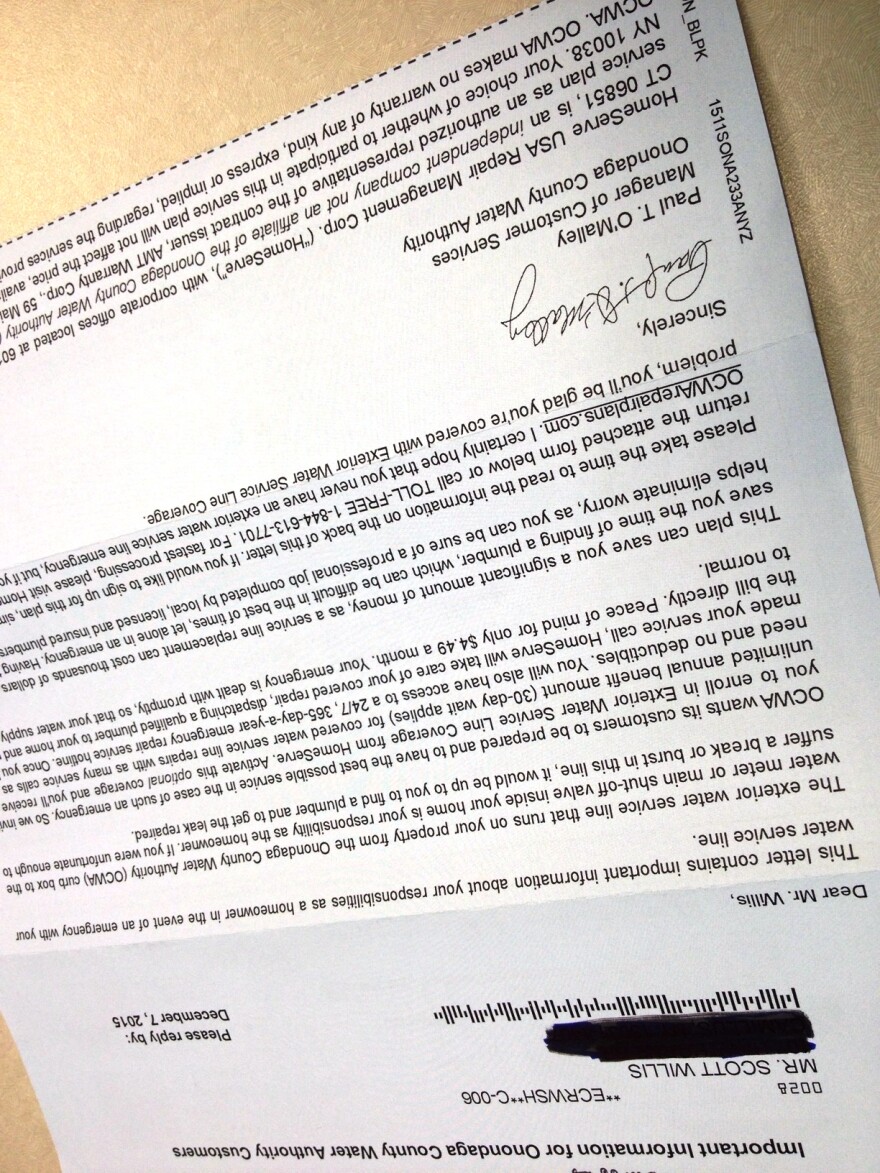 Important Information for Onondaga County Water Authority Customers
002B
**ECRWSH**C-006
MR. SCOTT WILLIS
Please reply by:
December 7, 2015
Dear Mr. Willis,
This letter contains important information about your responsibilities as a homeowner in the event of an emergency with your
water service line.
The exterior water service line that runs on your property from the Onondaga County Water Authority (OCWA) curb box to the
water meter or main shut-off valve inside your home is your responsibility as the homeowner. If you were unfortunate enough to
suffer a break or burst in this line, it would be up to you to find a plumber and to get the leak repaired.
OCWA wants its customers to be prepared and to have the best possible service in the case of such an emergency. So we
you to enroll in Exterior Water Service Line Coverage from HomeServe. Activate this optional coverage and you'll receive
unlimited annual benefit amount (30-day wait applies) for covered water service line repairs with as many service calls as
need and no deductibles. You will also have access to a 24/7, 365-day-a-year emergency repair service hotline. Once
made your service call, HomeServe will take care of your covered repair, dispatching a qualified plumber to your home and
the bill directly. Peace of mind for only $4.49 a month. Your emergency is dealt with promptly, so that your water supply
to normal.
This plan can save you a significant amount of money, as a service line replacement can cost thousands of dollars
save you the time of finding a plumber, which can be difficult in the best of times, let alone in an emergency. Having
helps eliminate worry, as you can be sure of a professional job completed by local, licensed and insured plumbers
Please take the time to read the information on the back of this letter. If you would like to sign up for this plan,
return the attached form below or call TOLL-FREE 1-844-613-7701. For fastest processing, please visit
OCWArepairplans.com. I certainly hope that you never have an exterior water service line emergency, but if
problem, you'll be glad you're covered with Exterior Water Service Line Coverage.
Sincerely,
Paul T. O'Malley
Paul T. O'Malley
Manager of Customer Services
Onondaga County Water Authority
HomeServe USA Repair Management Corp. ("HomeServe"), with corporate offices located at
CT 06851, is an independent company not an affiliate of the Onondaga County Water Authority
service plan as an authorized representative of the contract issuer, AMT Warranty Corp., 59
NY 10038. Your choice of whether to participate in this service plan will not affect the price,
OCWA. OCWA makes no warranty of any kind, express or implied, regarding the services
1511SONA233ANYZ
N_BLPK